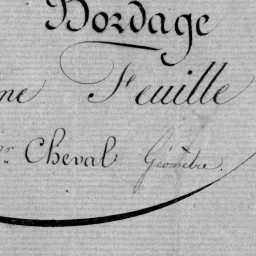 Bordage
ne Feuille
r. Cheval Géomètre.